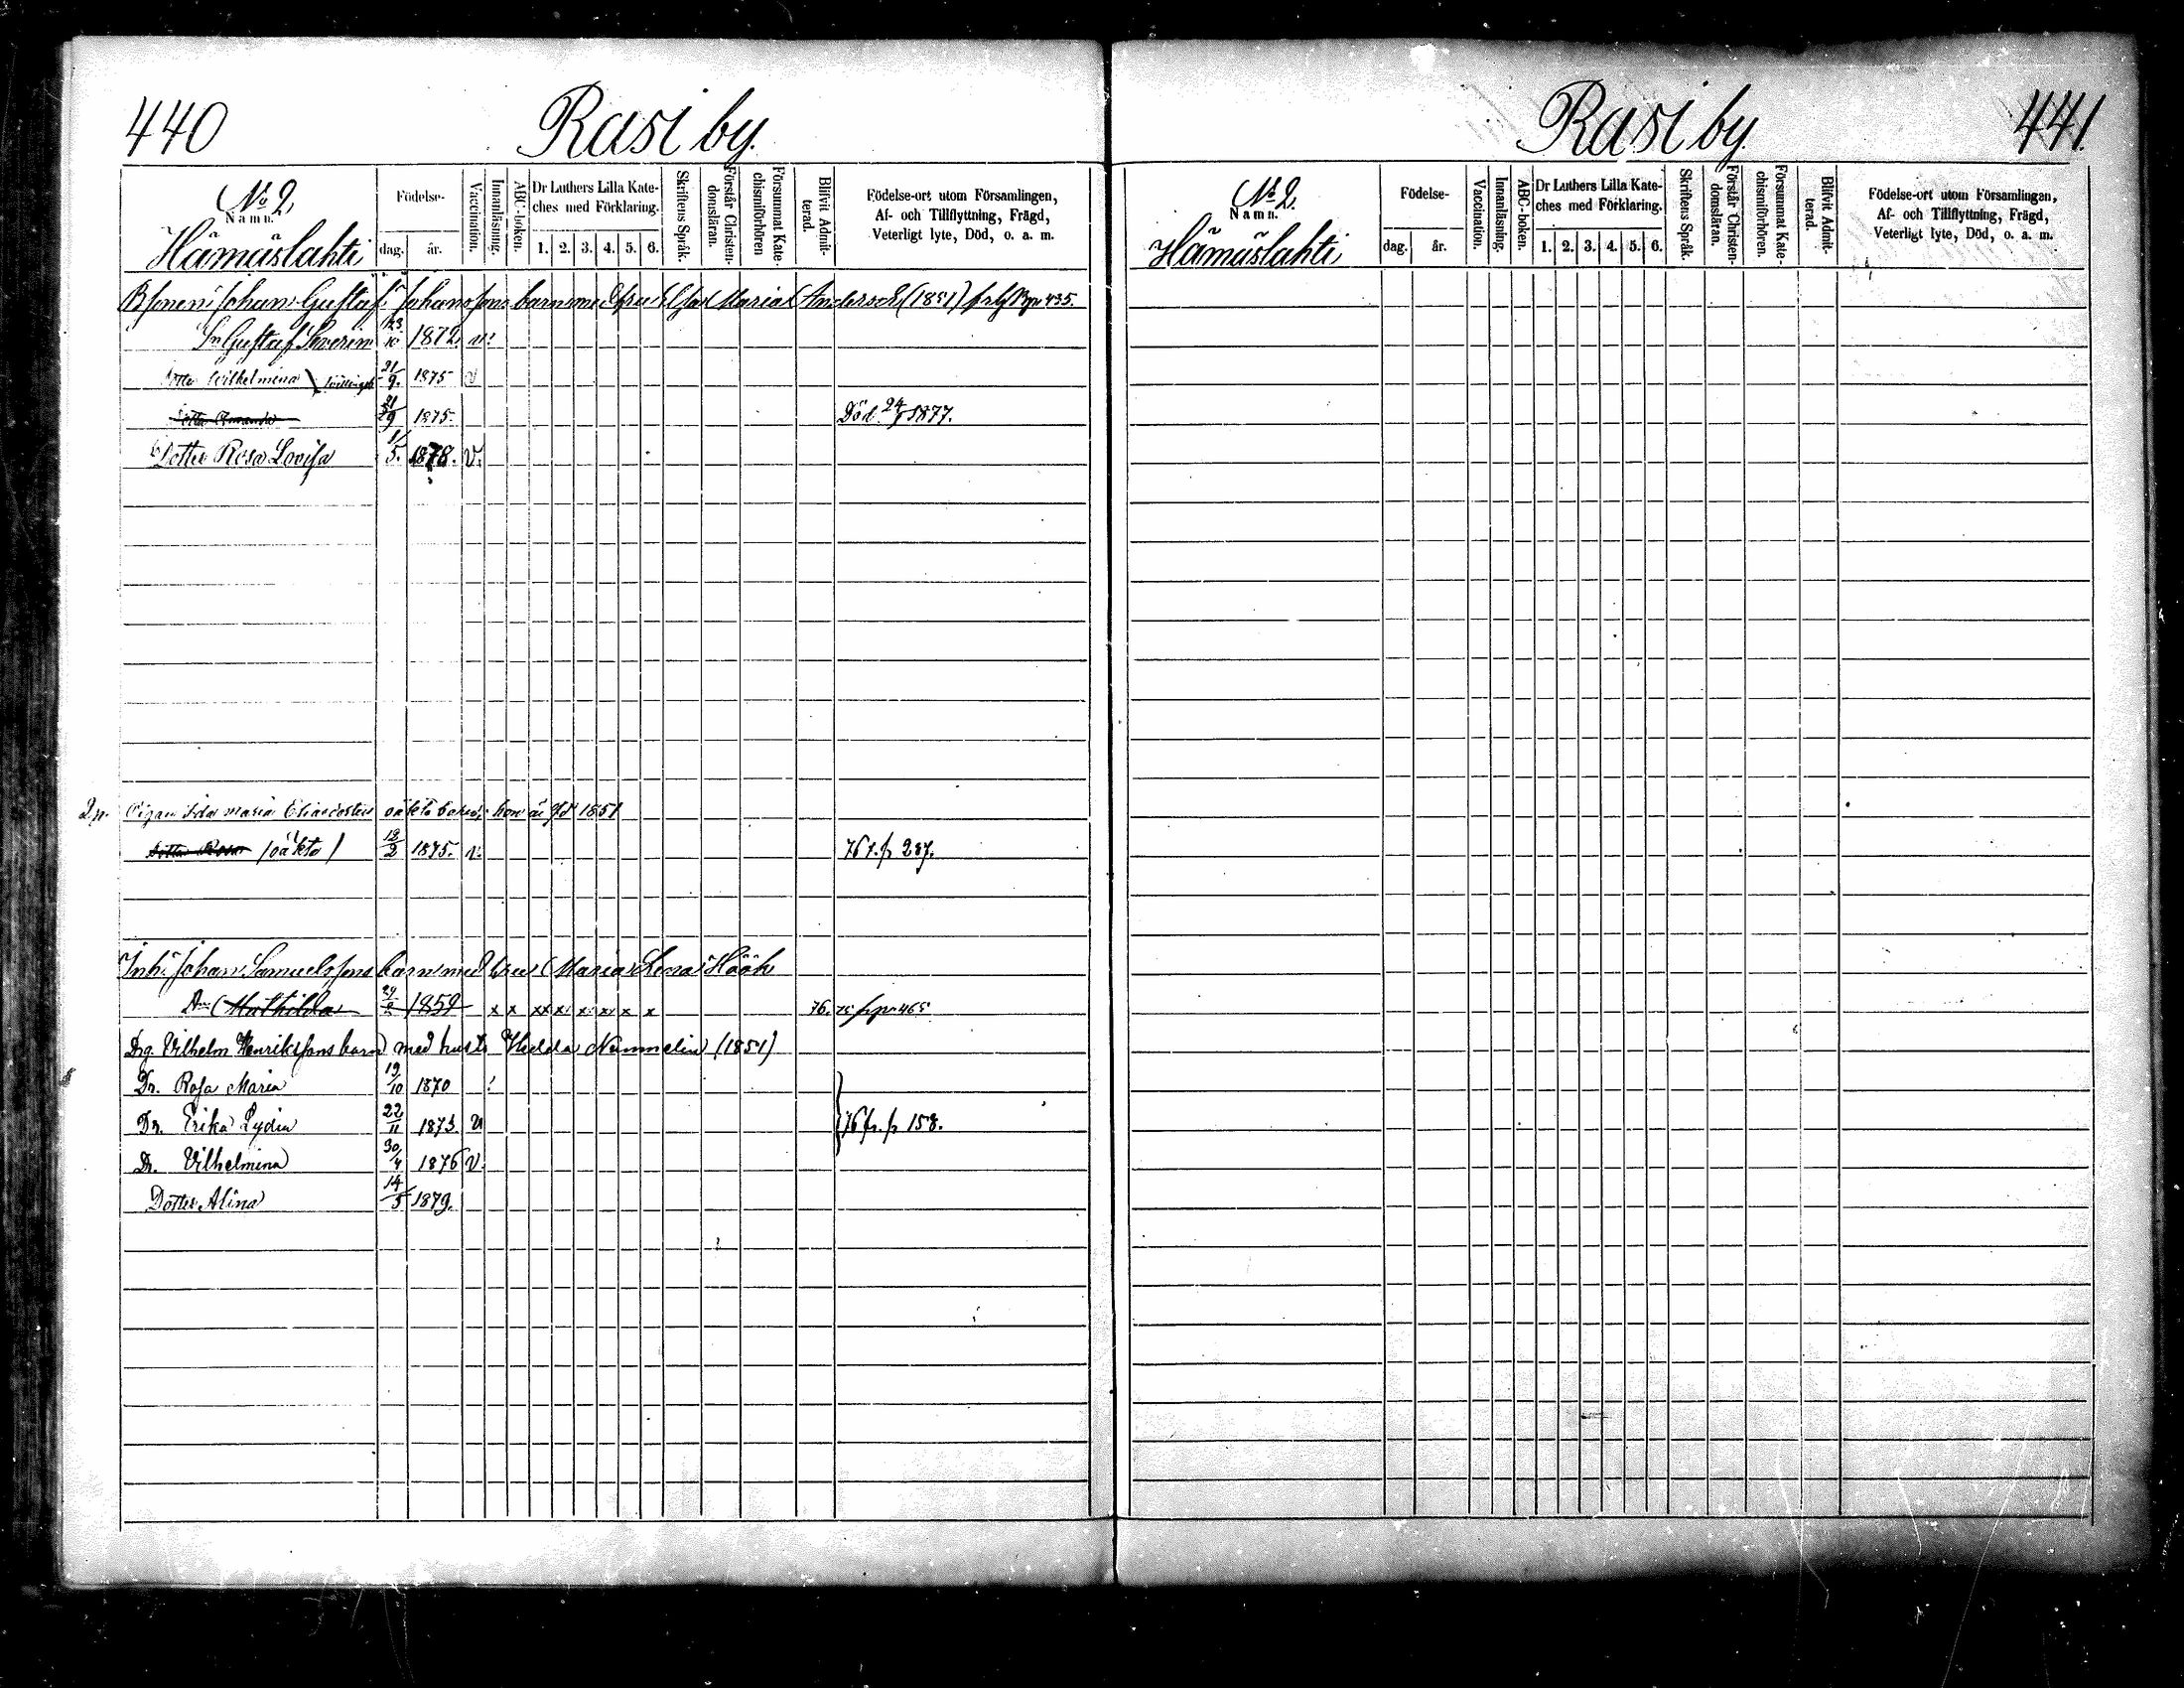 440 Rasi by.
No 2.
Namn.
Hämäslahti
Födelse-
dag. år.
Vaccination.
Innanläsning.
ABC-boken.
Dr Luthers Lilla Kate-
ches med Förklaring.
1. 2. 3. 4. 5. 6.
Skriftens Språk.
Förstår Christen-
domsläran.
Försummat Kate-
chismiförhören
Blifvit Admit-
terad.
Födelse-ort utom Församlingen,
Af- och Tillflyttning, Frägd,
Veterligt lyte, Död, o. a. m.
Johan Gustaf Johanssons barn med hru Maria Anderss (1851) 435.
Sn Gustaf Severin 23/10 1872. v.
Dotter Wilhelmina 21/9. 1875 v
Dotter Amanda 21/9 1875. Död 1877.
Dotter Rosa Lovisa 1/5. 1878. v.
Pigan Ida Maria oäkta barn; hon är född 1851
Dotter Rosa /oäkta/ 12/2 1875. v. 287.
Inh. Johan Samuelssons barn med hru Maria Lena Höök
Dr Mathilda 1859 x x x x x x x x x 76. 465
Drg. Vilhelm Henrikssons barn med hustr Hedda Nummelin (1851)
Dr. Rosa Maria 19/10 1870
Dr. Erika Lydia 22/11 1873 v 76 fr. p 158.
Dr. Vilhelmina 30/4 1876 v.
Dotter Alina 14/5 1879.
Rasi by 441.
No 2.
Namn.
Hämäslahti
Födelse-
dag. år.
Vaccination.
Innanläsning.
ABC-boken.
Dr Luthers Lilla Kate-
ches med Förklaring.
1. 2. 3. 4. 5. 6.
Skriftens Språk.
Förstår Christen-
domsläran.
Försummat Kate-
chismiförhören.
Blifvit Admit-
terad.
Födelse-ort utom Församlingen,
Af- och Tillflyttning, Frägd,
Veterligt lyte, Död, o. a. m.